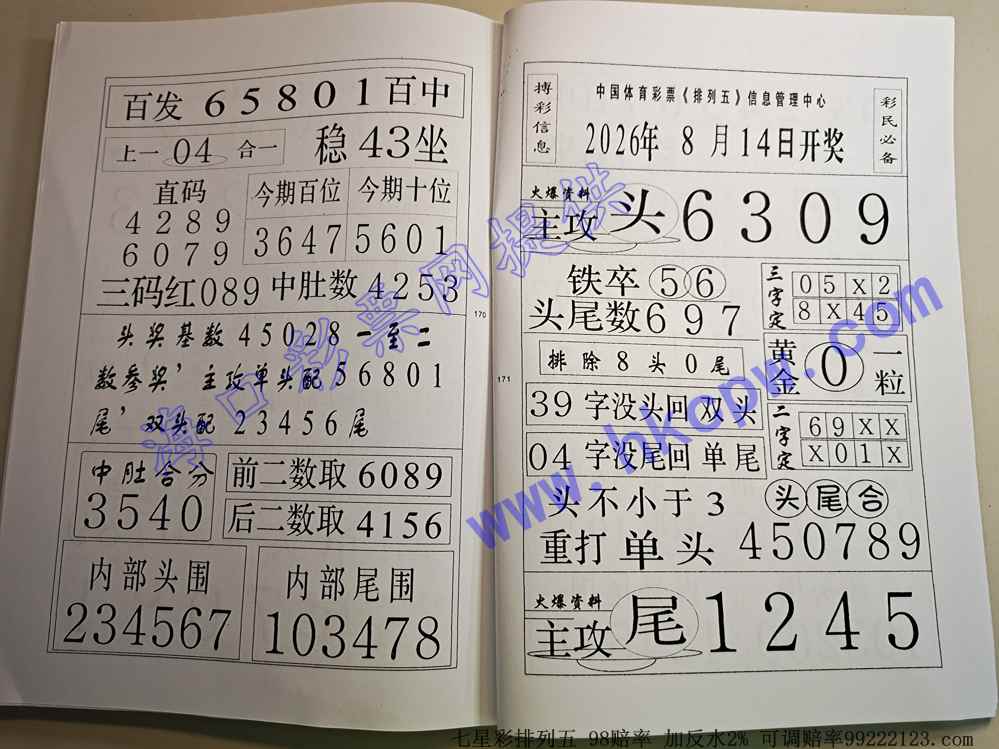 百发 65801 百中
上一 04 合一
稳 43 坐
直码
4289
6079
今期百位
3647
今期十位
5601
三码红 089
中肚数 4253
头奖基数 45028 一至二
数参奖，主攻单头配 56801
尾，双头配 23456 尾
中肚合分
3540
前二数取 6089
后二数取 4156
内部头围
234567
内部尾围
103478
170
171
搏彩信息
中国体育彩票《排列五》信息管理中心
2026年 8 月 14日开奖
彩民必备
火爆资料
主攻 头 6309
铁卒 56
头尾数 697
三字定
05X2
8X45
排除 8 头 0 尾
黄金 0 一粒
39 字没头回 双头
04 字没尾回 单尾
二字定
69XX
X01X
头不小于 3
头尾合
重打 单头 450789
火爆资料
主攻 尾 1245
海口彩票网提供
www.hkcpw.com
七星彩排列五 98赔率 加反水2% 可调赔率99222123.com